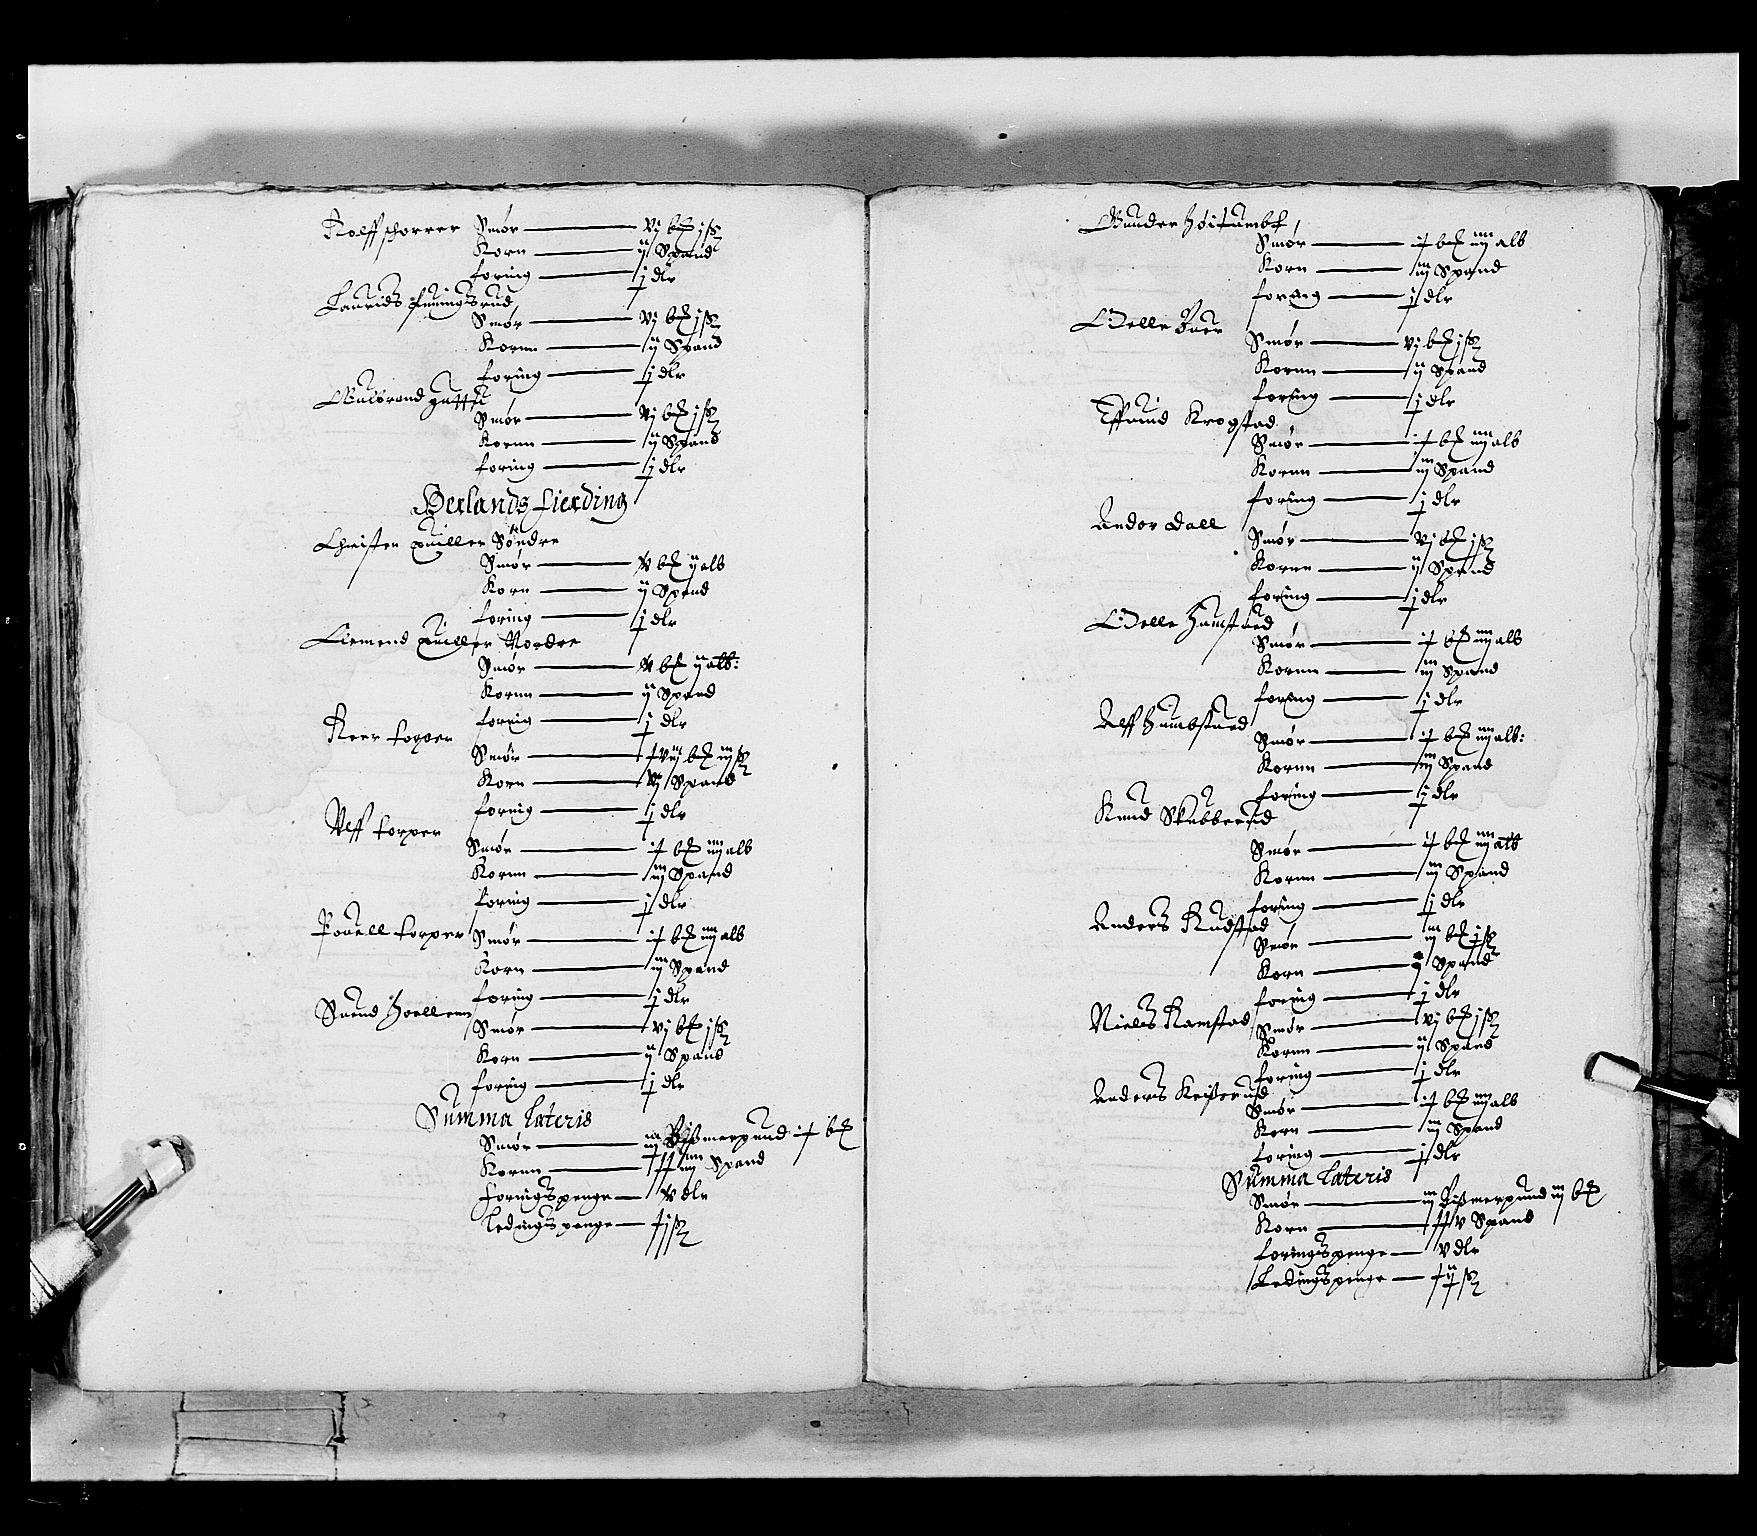 Rolff schorrer Smør — vj b℔ j ß
Korn — ij Spand
foring — j dlr
Laurids
Smør — vj b℔ j ß
Kornn — ij Spand
foring — j dlr
Gulbrand
Smør — vj b℔ j ß
Kornn — ij Spand
foring — j dlr
Berlands fierding
Christen quiller Søndre
Smør — v b℔ ij alb
Korn — ij Spand
foring — j dlr
Clemend quiller Nordre
Smør — v b℔ ij alb:
Kornn — ij Spand
foring — j dlr
Roer torper
Smør — b℔ iij ß
Korn — Spand
foring — j dlr
Alff torper
Smør — b℔ iiij alb
Kornn — iij Spand
foring — j dlr
Povell torper
Smør — b℔ iiij alb
Korn — iij Spand
foring — j dlr
Suend
Smør — vj b℔ j ß
Korn — ij Spand
foring — j dlr
Summa lateris
Smør — iij Bißmerpund b℔
Kornn — Spand
foringspenge — v dlr
Ledingspenge — ß
Gunder
Smør — b℔ iiij alb
Korn — iij Spand
foring — j dlr
Helle
Smør — vj b℔ j ß
Kornn — ij Spand
foring — j dlr
Effuind Krogstad
Smør — b℔ iiij alb
Kornn — iij Spand
foring — j dlr
Andor dall
Smør — vj b℔ j ß
Kornn — ij Spand
foring — j dlr
Helle Hamstad
Smør — b℔ iiij alb
Kornn — iij Spand
foring — j dlr
Alff Humbstad
Smør — b℔ iiij alb:
Kornn — iij Spand
foring — j dlr
Knud Skubberud
Smør — b℔ iiij alb
Kornn — iij Spand
foring — j dlr
Anders Rudstad
Smør — iij b℔ j ß
Korn — Spand
foring — j dlr
Niels Ramstad
Smør — vj b℔ j ß
Kornn — ij Spand
foring — j dlr
Anders Keißerud
Smør — b℔ iiij alb
Korn — iij Spand
foring — j dlr
Summa lateris
Smør — iij Bißmerpund iij b℔
Korn — Spand
foringspenge — v dlr
Ledingspenge — ß